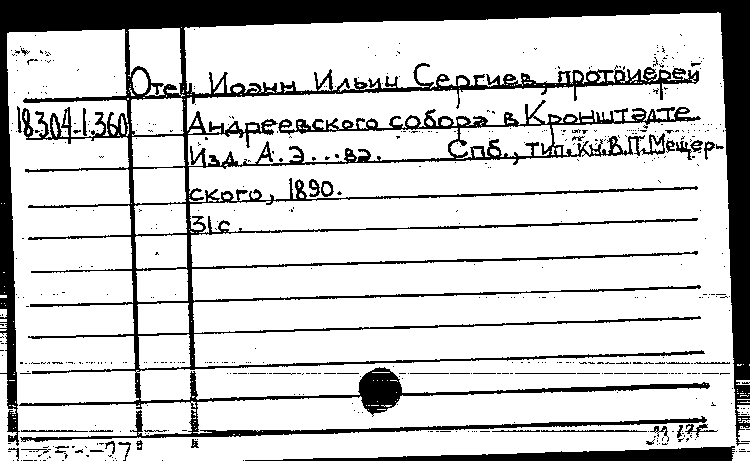 Отец Иоанн Ильич Сергиев, протоиерей
18.304-1.360
Андреевского собора в Кронштадте.
Изд. А.Э...ва. Спб., тип. кн. В.П. Мещер-
ского, 1890.
31 с.